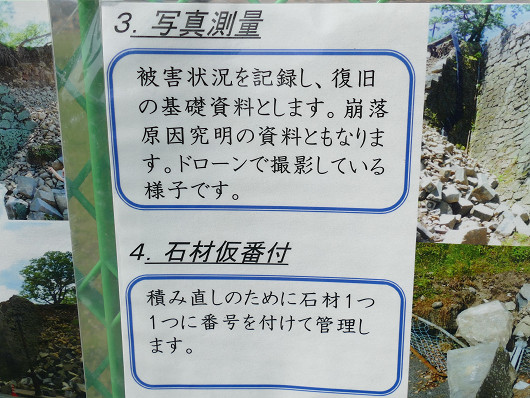 3. 写真測量
被害状況を記録し、復旧
の基礎資料とします。崩落
原因究明の資料ともなりま
す。ドローンで撮影している
様子です。
4. 石材仮番付
積み直しのために石材1つ
1つに番号を付けて管理し
ます。